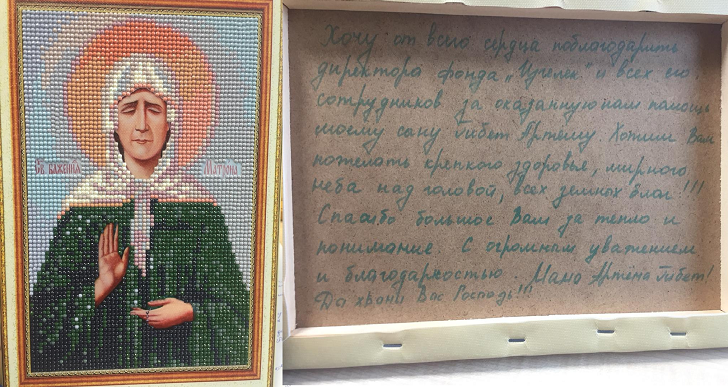 Св. блаженная Матрона
Хочу от всего сердца поблагодарить
директора фонда „Изгелек" и всех его
сотрудников за оказанную нам помощь
моему сыну Гибет Артёму. Хотим Вам
пожелать крепкого здоровья, мирного
неба над головой, всех земных благ!!!
Спасибо большое Вам за тепло и
понимание. С огромным уважением
и благодарностью. Мама Артёма Гибет!
Да храни Вас Господь!!!